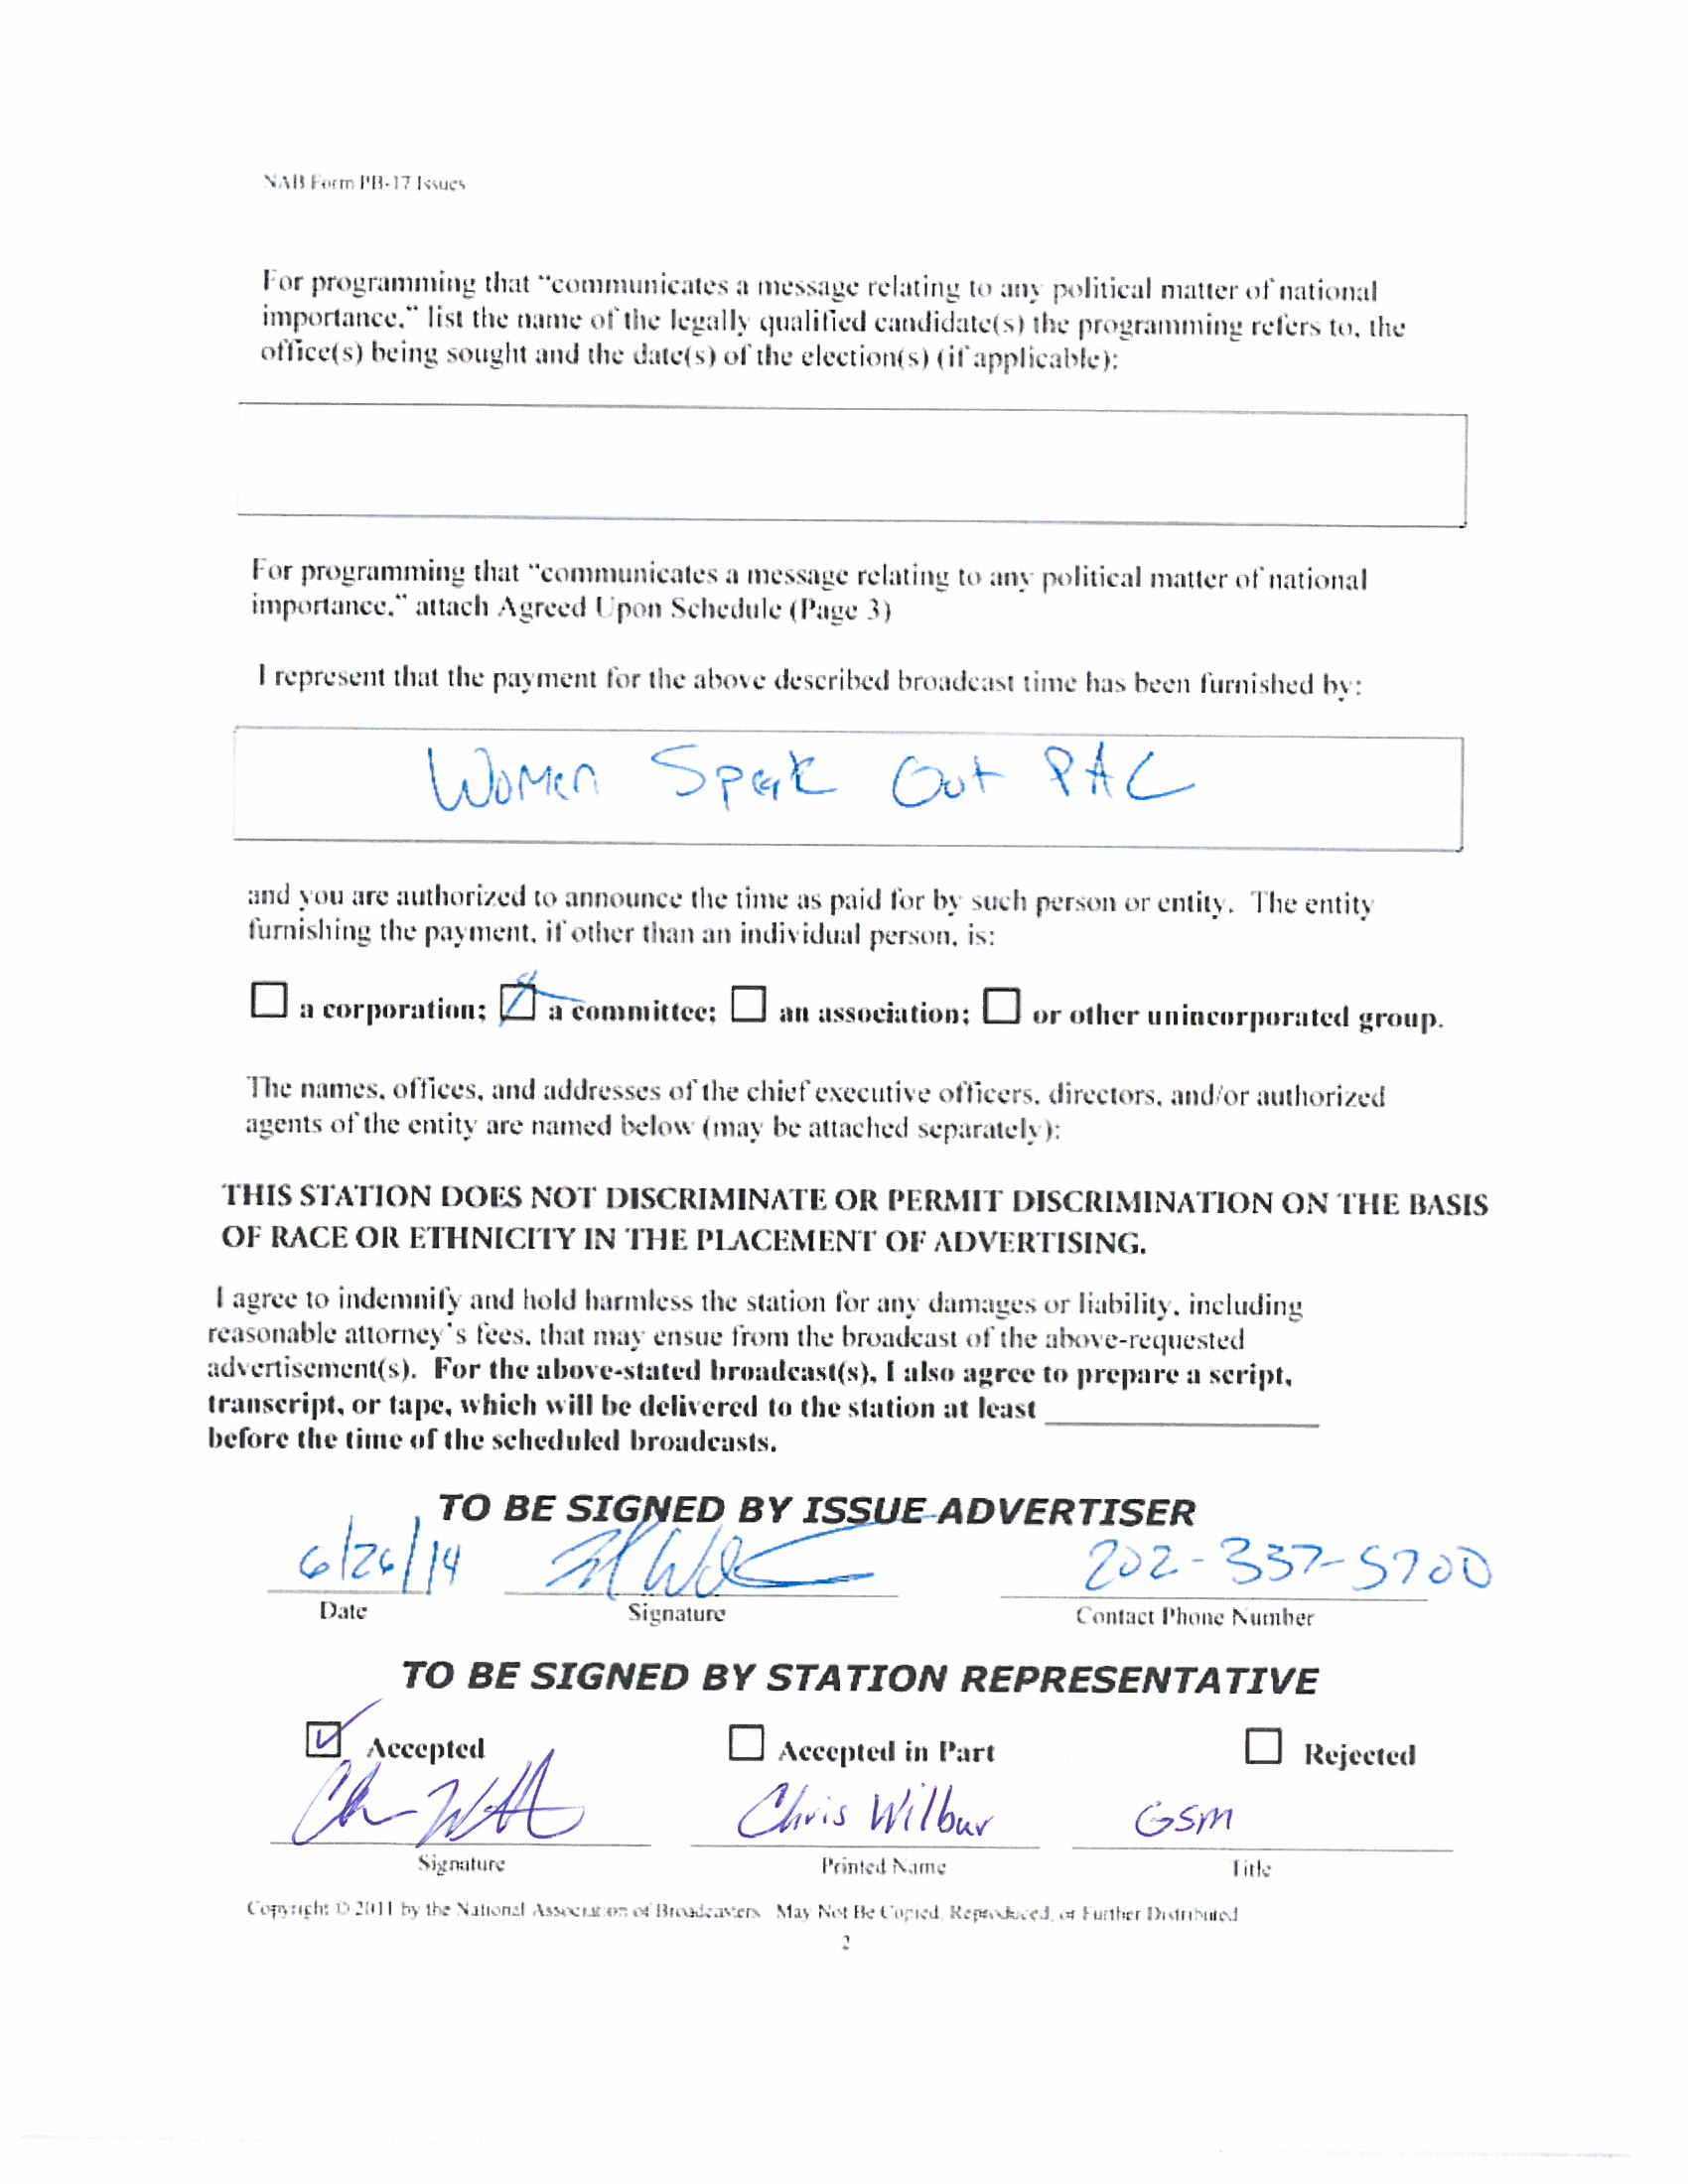 NAB Form PB-17 Issues
For programming that “communicates a message relating to any political matter of national
importance,” list the name of the legally qualified candidate(s) the programming refers to, the
office(s) being sought and the date(s) of the election(s) (if applicable):
For programming that “communicates a message relating to any political matter of national
importance,” attach Agreed Upon Schedule (Page 3)
I represent that the payment for the above described broadcast time has been furnished by:
Women Speak Out PAC
and you are authorized to announce the time as paid for by such person or entity. The entity
furnishing the payment, if other than an individual person, is:
a corporation; a committee; an association; or other unincorporated group.
The names, offices, and addresses of the chief executive officers, directors, and/or authorized
agents of the entity are named below (may be attached separately):
THIS STATION DOES NOT DISCRIMINATE OR PERMIT DISCRIMINATION ON THE BASIS
OF RACE OR ETHNICITY IN THE PLACEMENT OF ADVERTISING.
I agree to indemnify and hold harmless the station for any damages or liability, including
reasonable attorney's fees, that may ensue from the broadcast of the above-requested
advertisement(s). For the above-stated broadcast(s), I also agree to prepare a script,
transcript, or tape, which will be delivered to the station at least
before the time of the scheduled broadcasts.
TO BE SIGNED BY ISSUE ADVERTISER
6/26/14 202-337-5700
Date Signature Contact Phone Number
TO BE SIGNED BY STATION REPRESENTATIVE
Accepted Accepted in Part Rejected
Chris Wilbur GSM
Signature Printed Name Title
Copyright © 2011 by the National Association of Broadcasters May Not Be Copied, Reproduced, or Further Distributed
2